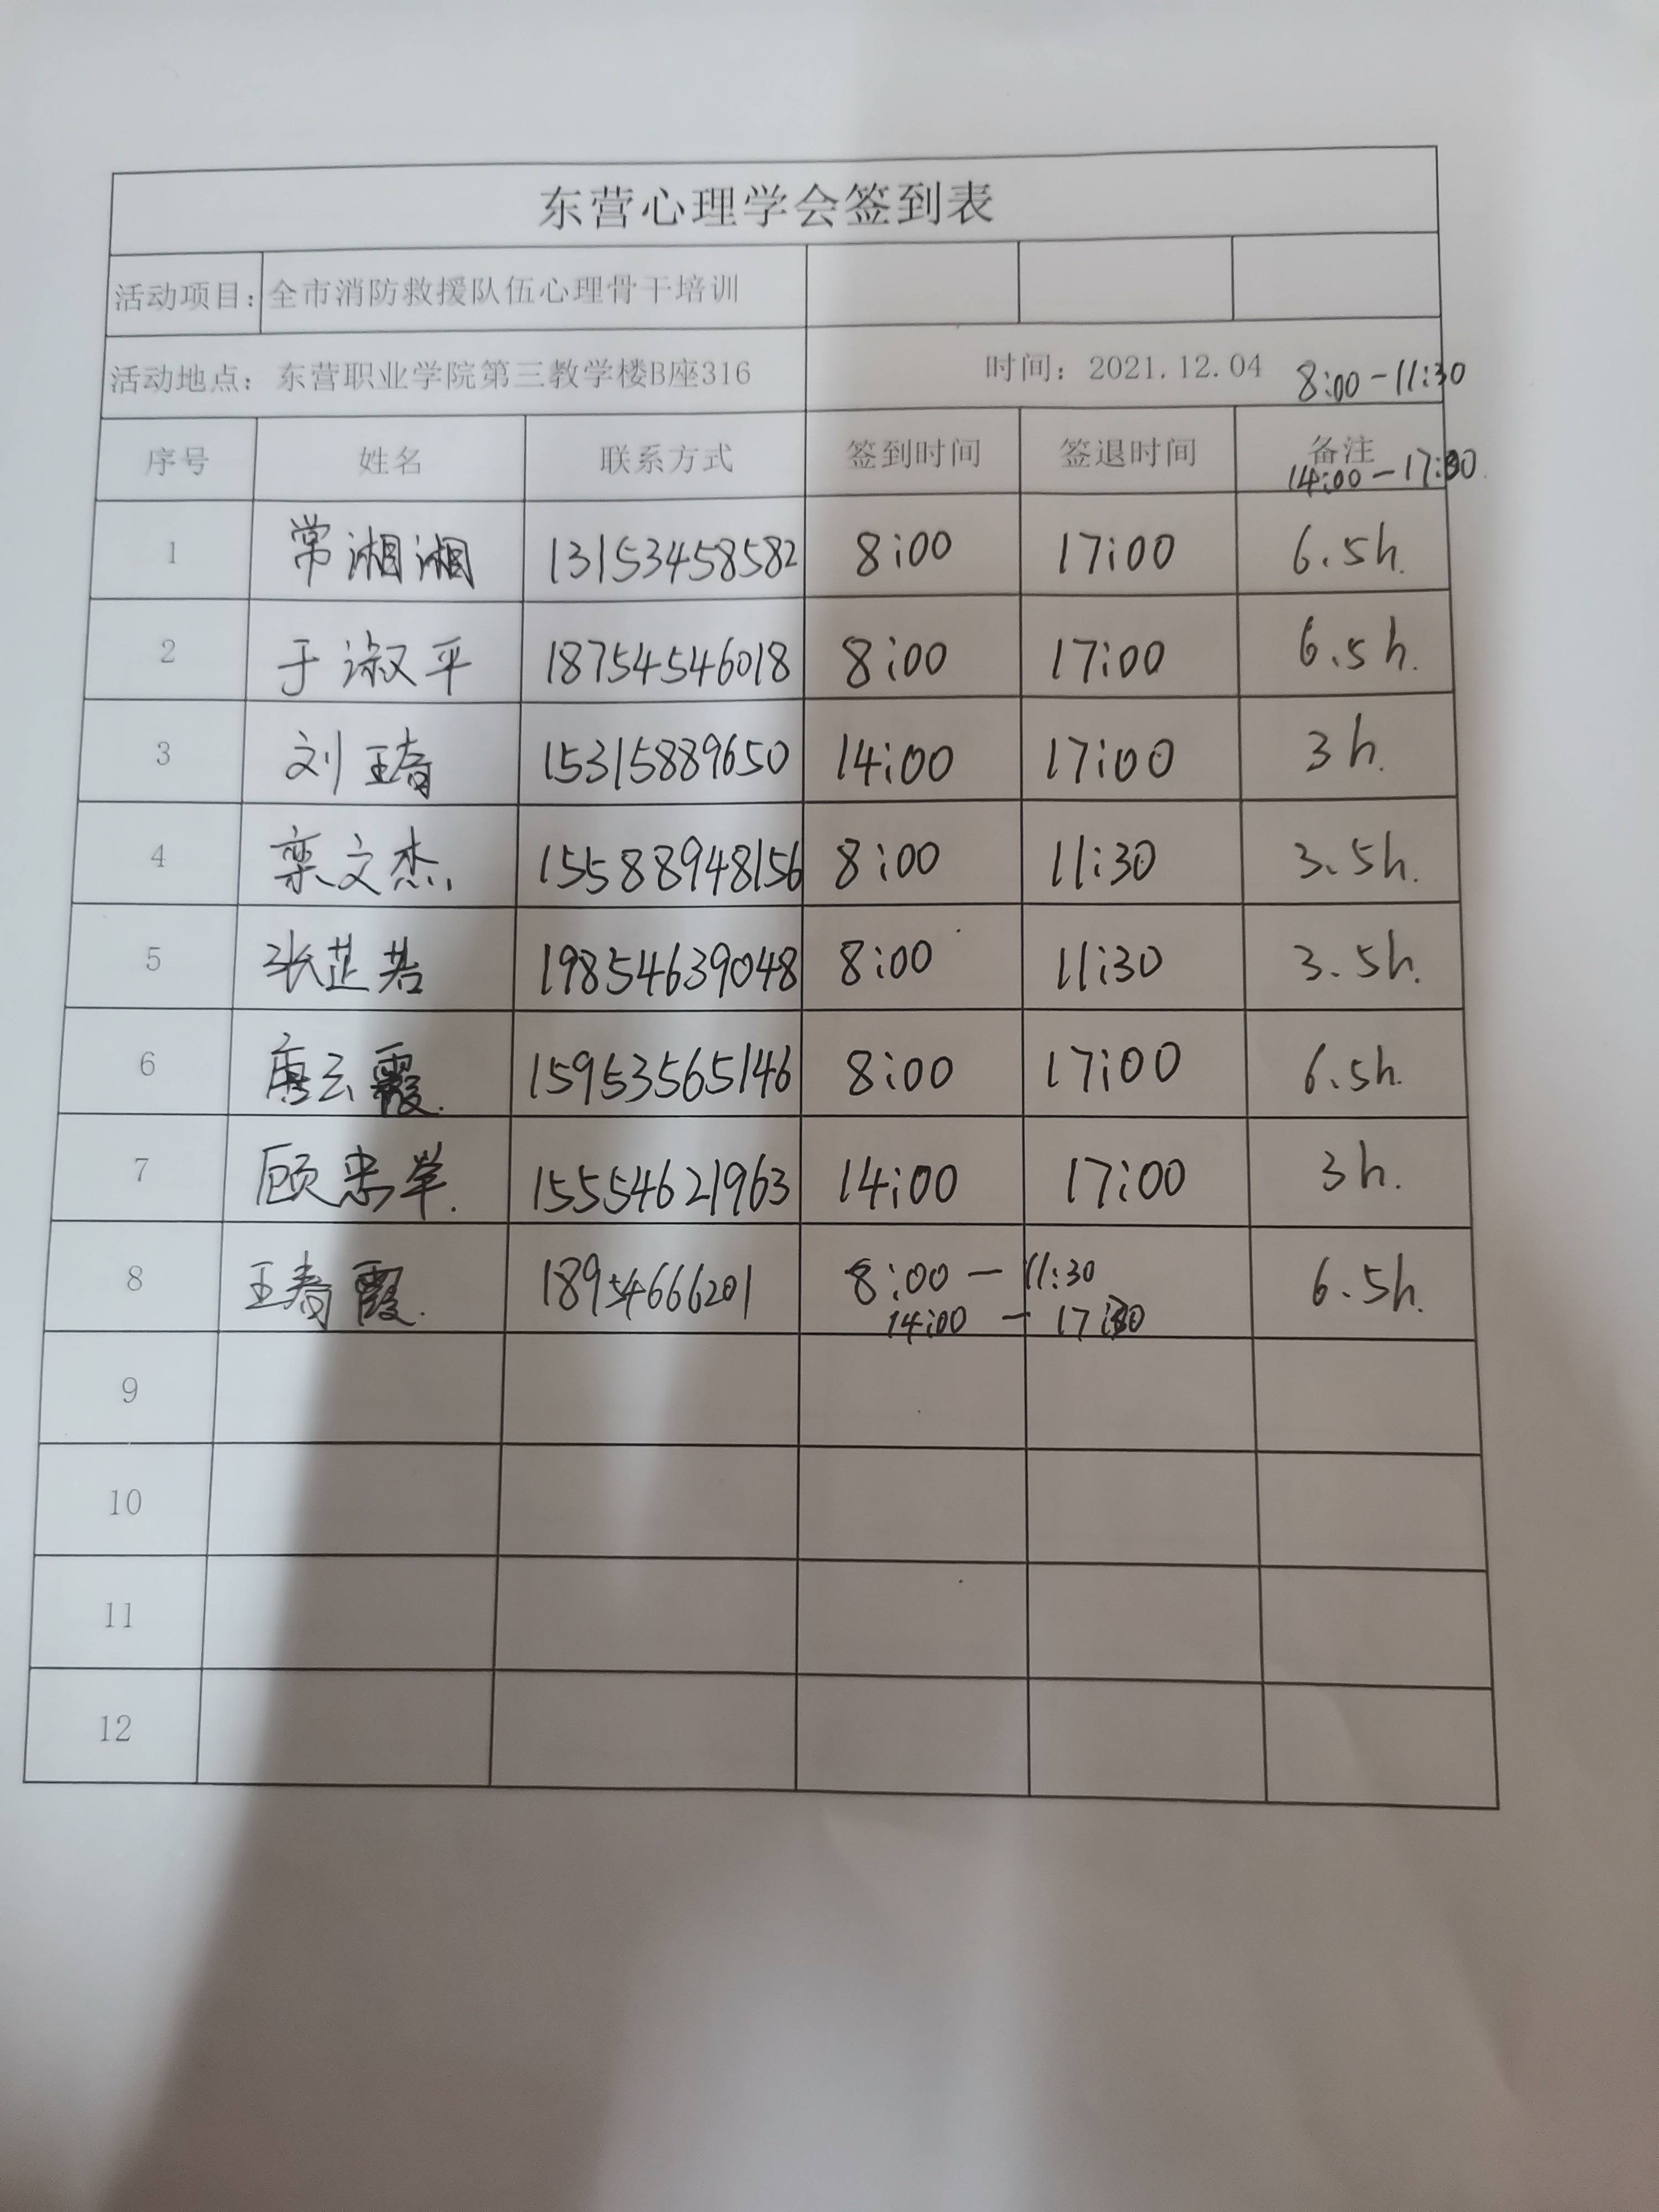 东营心理学会签到表
活动项目: 全市消防救援队伍心理骨干培训
活动地点: 东营职业学院第三教学楼B座316 时间: 2021.12.04 8:00-11:30
序号 姓名 联系方式 签到时间 签退时间 备注
14:00-17:00
1 常湘湘 13153458582 8:00 17:00 6.5h.
2 于淑平 18754546018 8:00 17:00 6.5h.
3 刘琦 15315889650 14:00 17:00 3h.
4 栾文杰 15588948156 8:00 11:30 3.5h.
5 张芷若 19854639048 8:00 11:30 3.5h.
6 唐云霞. 15953565146 8:00 17:00 6.5h.
7 顾忠举. 15554621963 14:00 17:00 3h.
8 王春霞. 18954666201 8:00-11:30 6.5h.
14:00-17:00
9
10
11
12